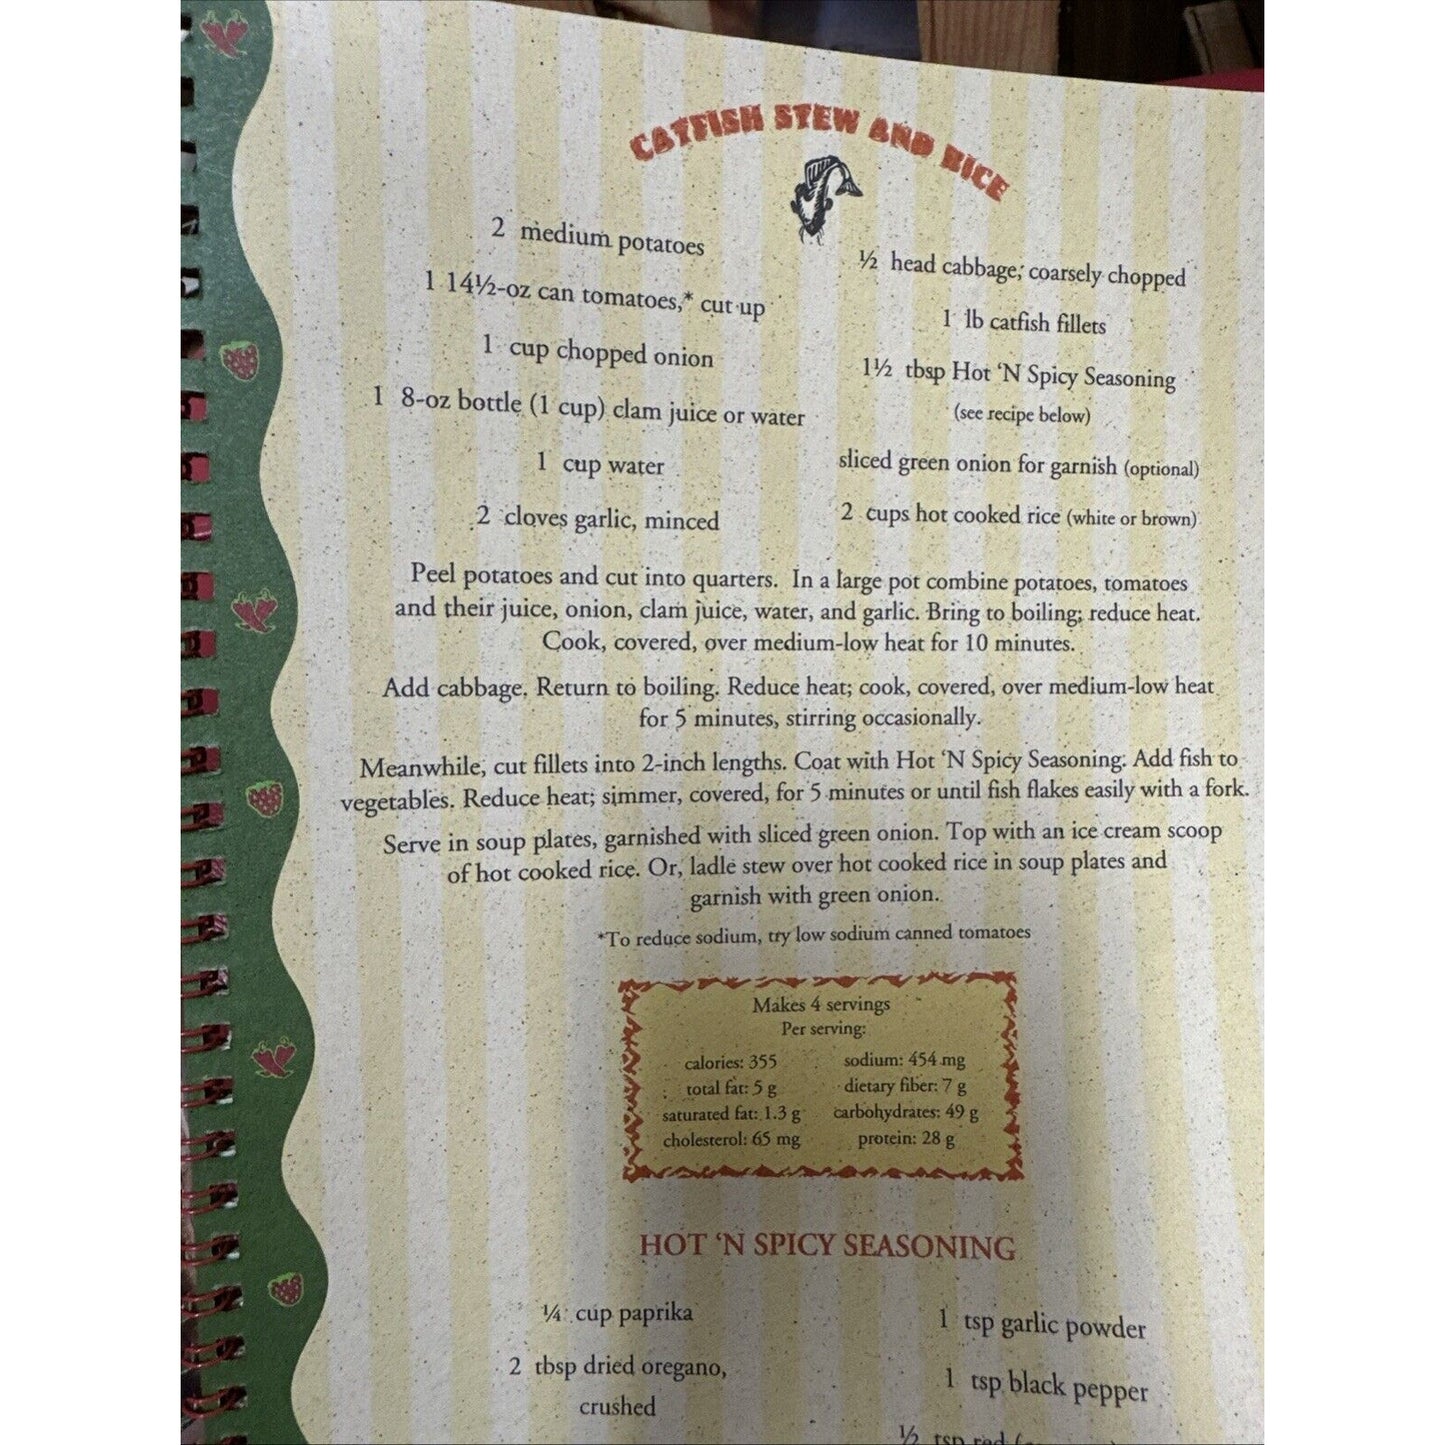 CATFISH STEW AND RICE
2 medium potatoes
1 14½-oz can tomatoes,* cut up
1 cup chopped onion
1 8-oz bottle (1 cup) clam juice or water
1 cup water
2 cloves garlic, minced
½ head cabbage, coarsely chopped
1 lb catfish fillets
1½ tbsp Hot ‘N Spicy Seasoning
(see recipe below)
sliced green onion for garnish (optional)
2 cups hot cooked rice (white or brown)
Peel potatoes and cut into quarters. In a large pot combine potatoes, tomatoes
and their juice, onion, clam juice, water, and garlic. Bring to boiling; reduce heat.
Cook, covered, over medium-low heat for 10 minutes.
Add cabbage. Return to boiling. Reduce heat; cook, covered, over medium-low heat
for 5 minutes, stirring occasionally.
Meanwhile, cut fillets into 2-inch lengths. Coat with Hot ‘N Spicy Seasoning. Add fish to
vegetables. Reduce heat; simmer, covered, for 5 minutes or until fish flakes easily with a fork.
Serve in soup plates, garnished with sliced green onion. Top with an ice cream scoop
of hot cooked rice. Or, ladle stew over hot cooked rice in soup plates and
garnish with green onion.
*To reduce sodium, try low sodium canned tomatoes
Makes 4 servings
Per serving:
calories: 355
total fat: 5 g
saturated fat: 1.3 g
cholesterol: 65 mg
sodium: 454 mg
dietary fiber: 7 g
carbohydrates: 49 g
protein: 28 g
HOT ‘N SPICY SEASONING
¼ cup paprika
2 tbsp dried oregano,
crushed
1 tsp garlic powder
1 tsp black pepper
½ tsp red